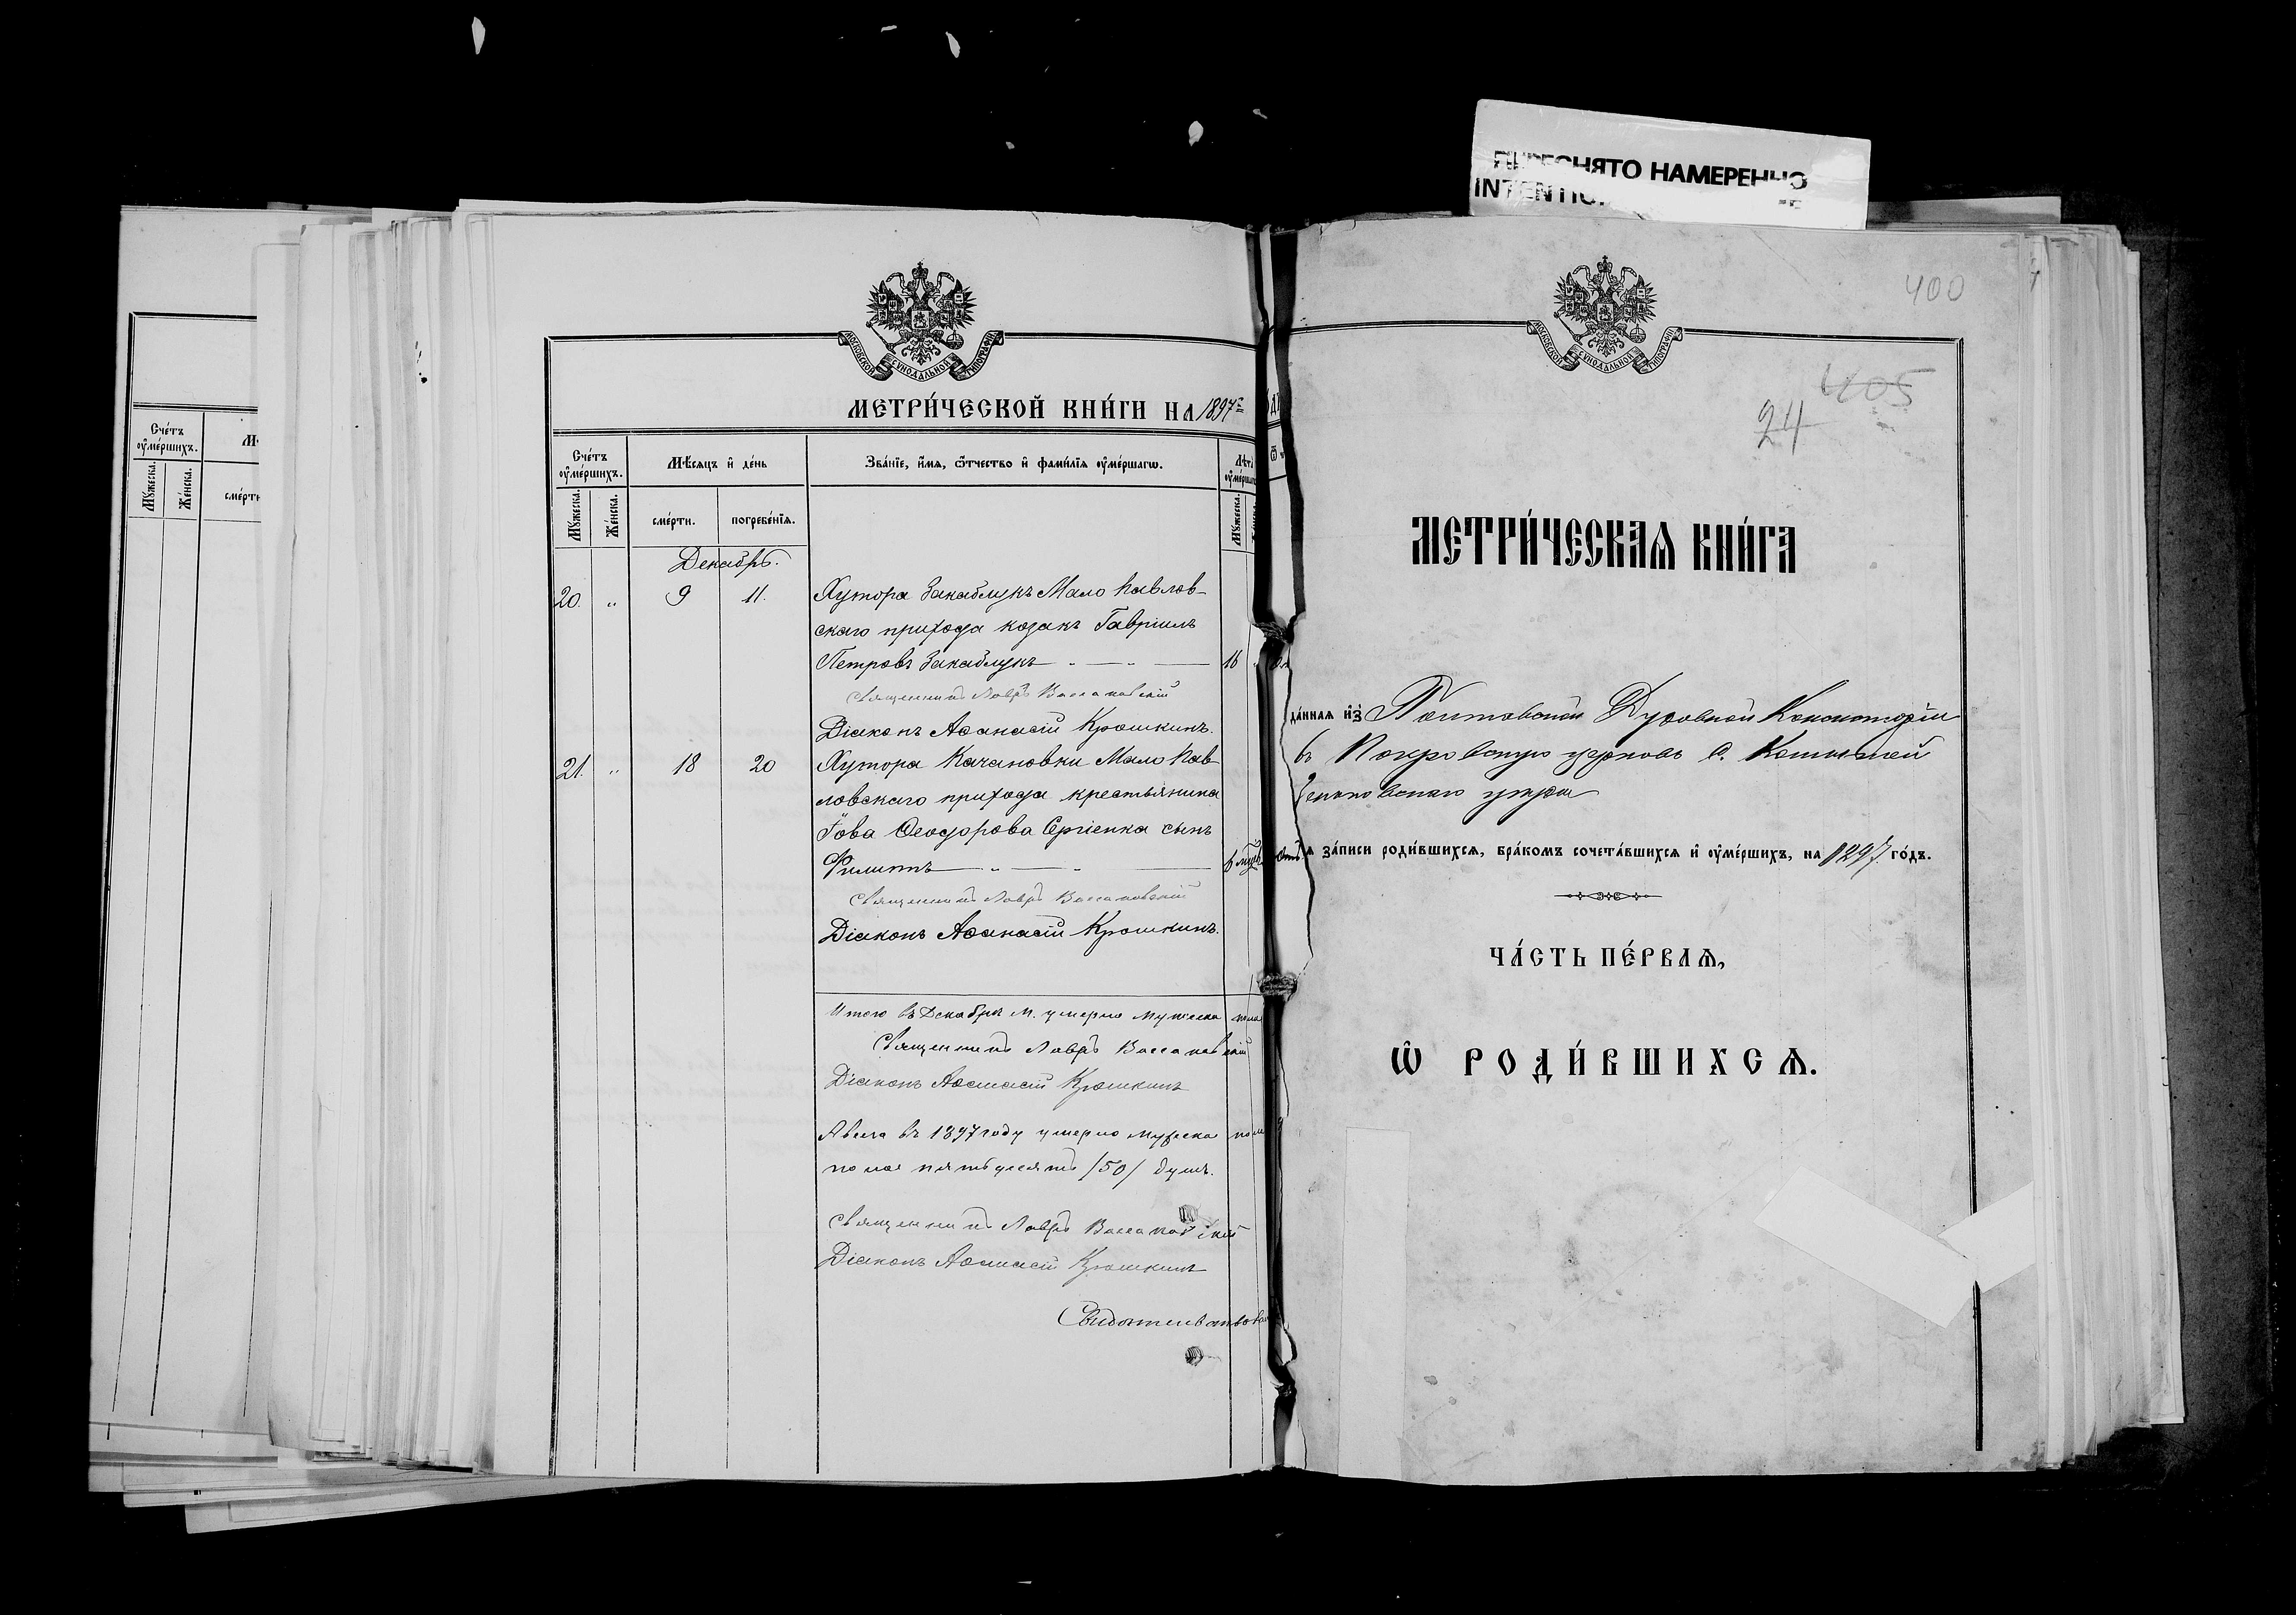 ПЕРЕСНЯТО НАМЕРЕННО
400
405
24
Счетъ оумершихъ.
Мужеска.
Женска.
смерти
МОСКОВСКОЙ СУНОДАЛЬНОЙ ТИПОГРАФІИ
МЕТРИЧЕСКОЙ КНИГИ НА 1897 г.
Счетъ оумершихъ.
Мѣсяцъ и день
Званіе, имя, отчество и фамилія оумершагѡ.
Мужеска.
Женска.
смерти.
погребенія.
Мужеска.
Декабрь.
20. „ 9 11. Хутора Закаблукъ Мало Павлов-
скаго прихода козакъ Гавріилъ
Петровъ Закаблукъ 16
Священникъ Лавръ
Діаконъ Аѳанасій Крошкинъ.
21. „ 18 20 Хутора Качановки Мало Пав-
ловскаго прихода крестьянина
Іова Ѳеодорова Сергіенка сынъ
Филиппъ
Священникъ Лавръ
Діаконъ Аѳанасій Крошкинъ.
Итого въ Декабрѣ м. умерло мужеска пола
Священникъ Лавръ
Діаконъ Аѳанасій Крошкинъ
А всего въ 1897 году умерло мужеска
пола пятьдесятъ /50/ душъ.
Священникъ Лавръ
Діаконъ Аѳанасій Крошкинъ
МОСКОВСКОЙ СУНОДАЛЬНОЙ ТИПОГРАФІИ
МЕТРИЧЕСКАЯ КНИГА
данная изъ Полтавской Духовной Консисторіи
въ Покровскую церковь с.
Зеньковскаго уѣзда
записи родившихся, бракомъ сочетавшихся и оумершихъ, на 1897 годъ.
ЧАСТЬ ПЕРВАЯ,
Ѡ РОДИВШИХСЯ.